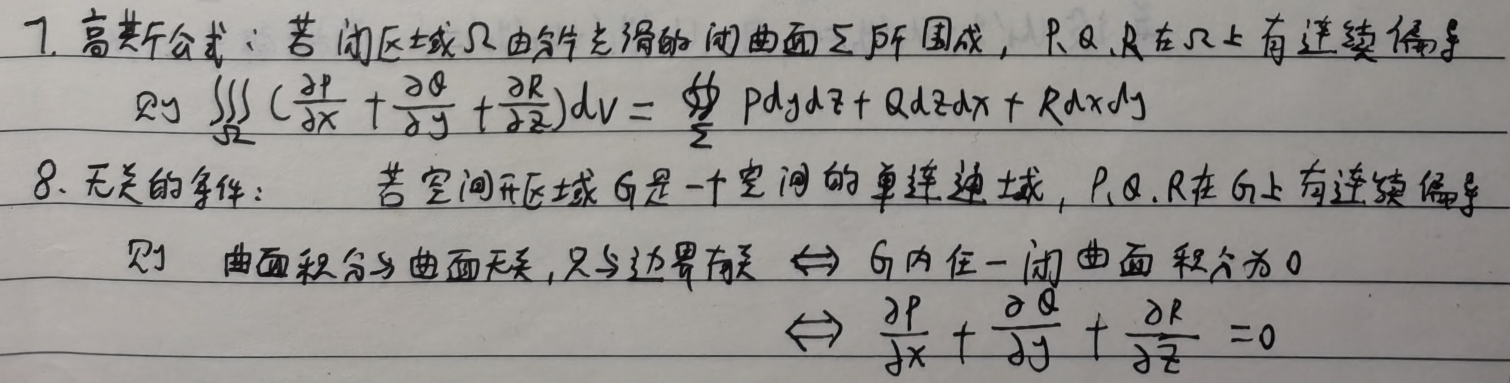 7. 高斯公式：若闭区域Ω由分片光滑的闭曲面Σ所围成，P、Q、R在Ω上有连续偏导
则 ∭_Ω (∂P/∂x + ∂Q/∂y + ∂R/∂z)dV = ∯_Σ Pdydz + Qdzdx + Rdxdy
8. 无关的条件： 若空间开区域G是一个空间的单连通域，P、Q、R在G上有连续偏导
则 曲面积分与曲面无关，只与边界有关 ⇔ G内任一闭曲面积分为0
⇔ ∂P/∂x + ∂Q/∂y + ∂R/∂z = 0